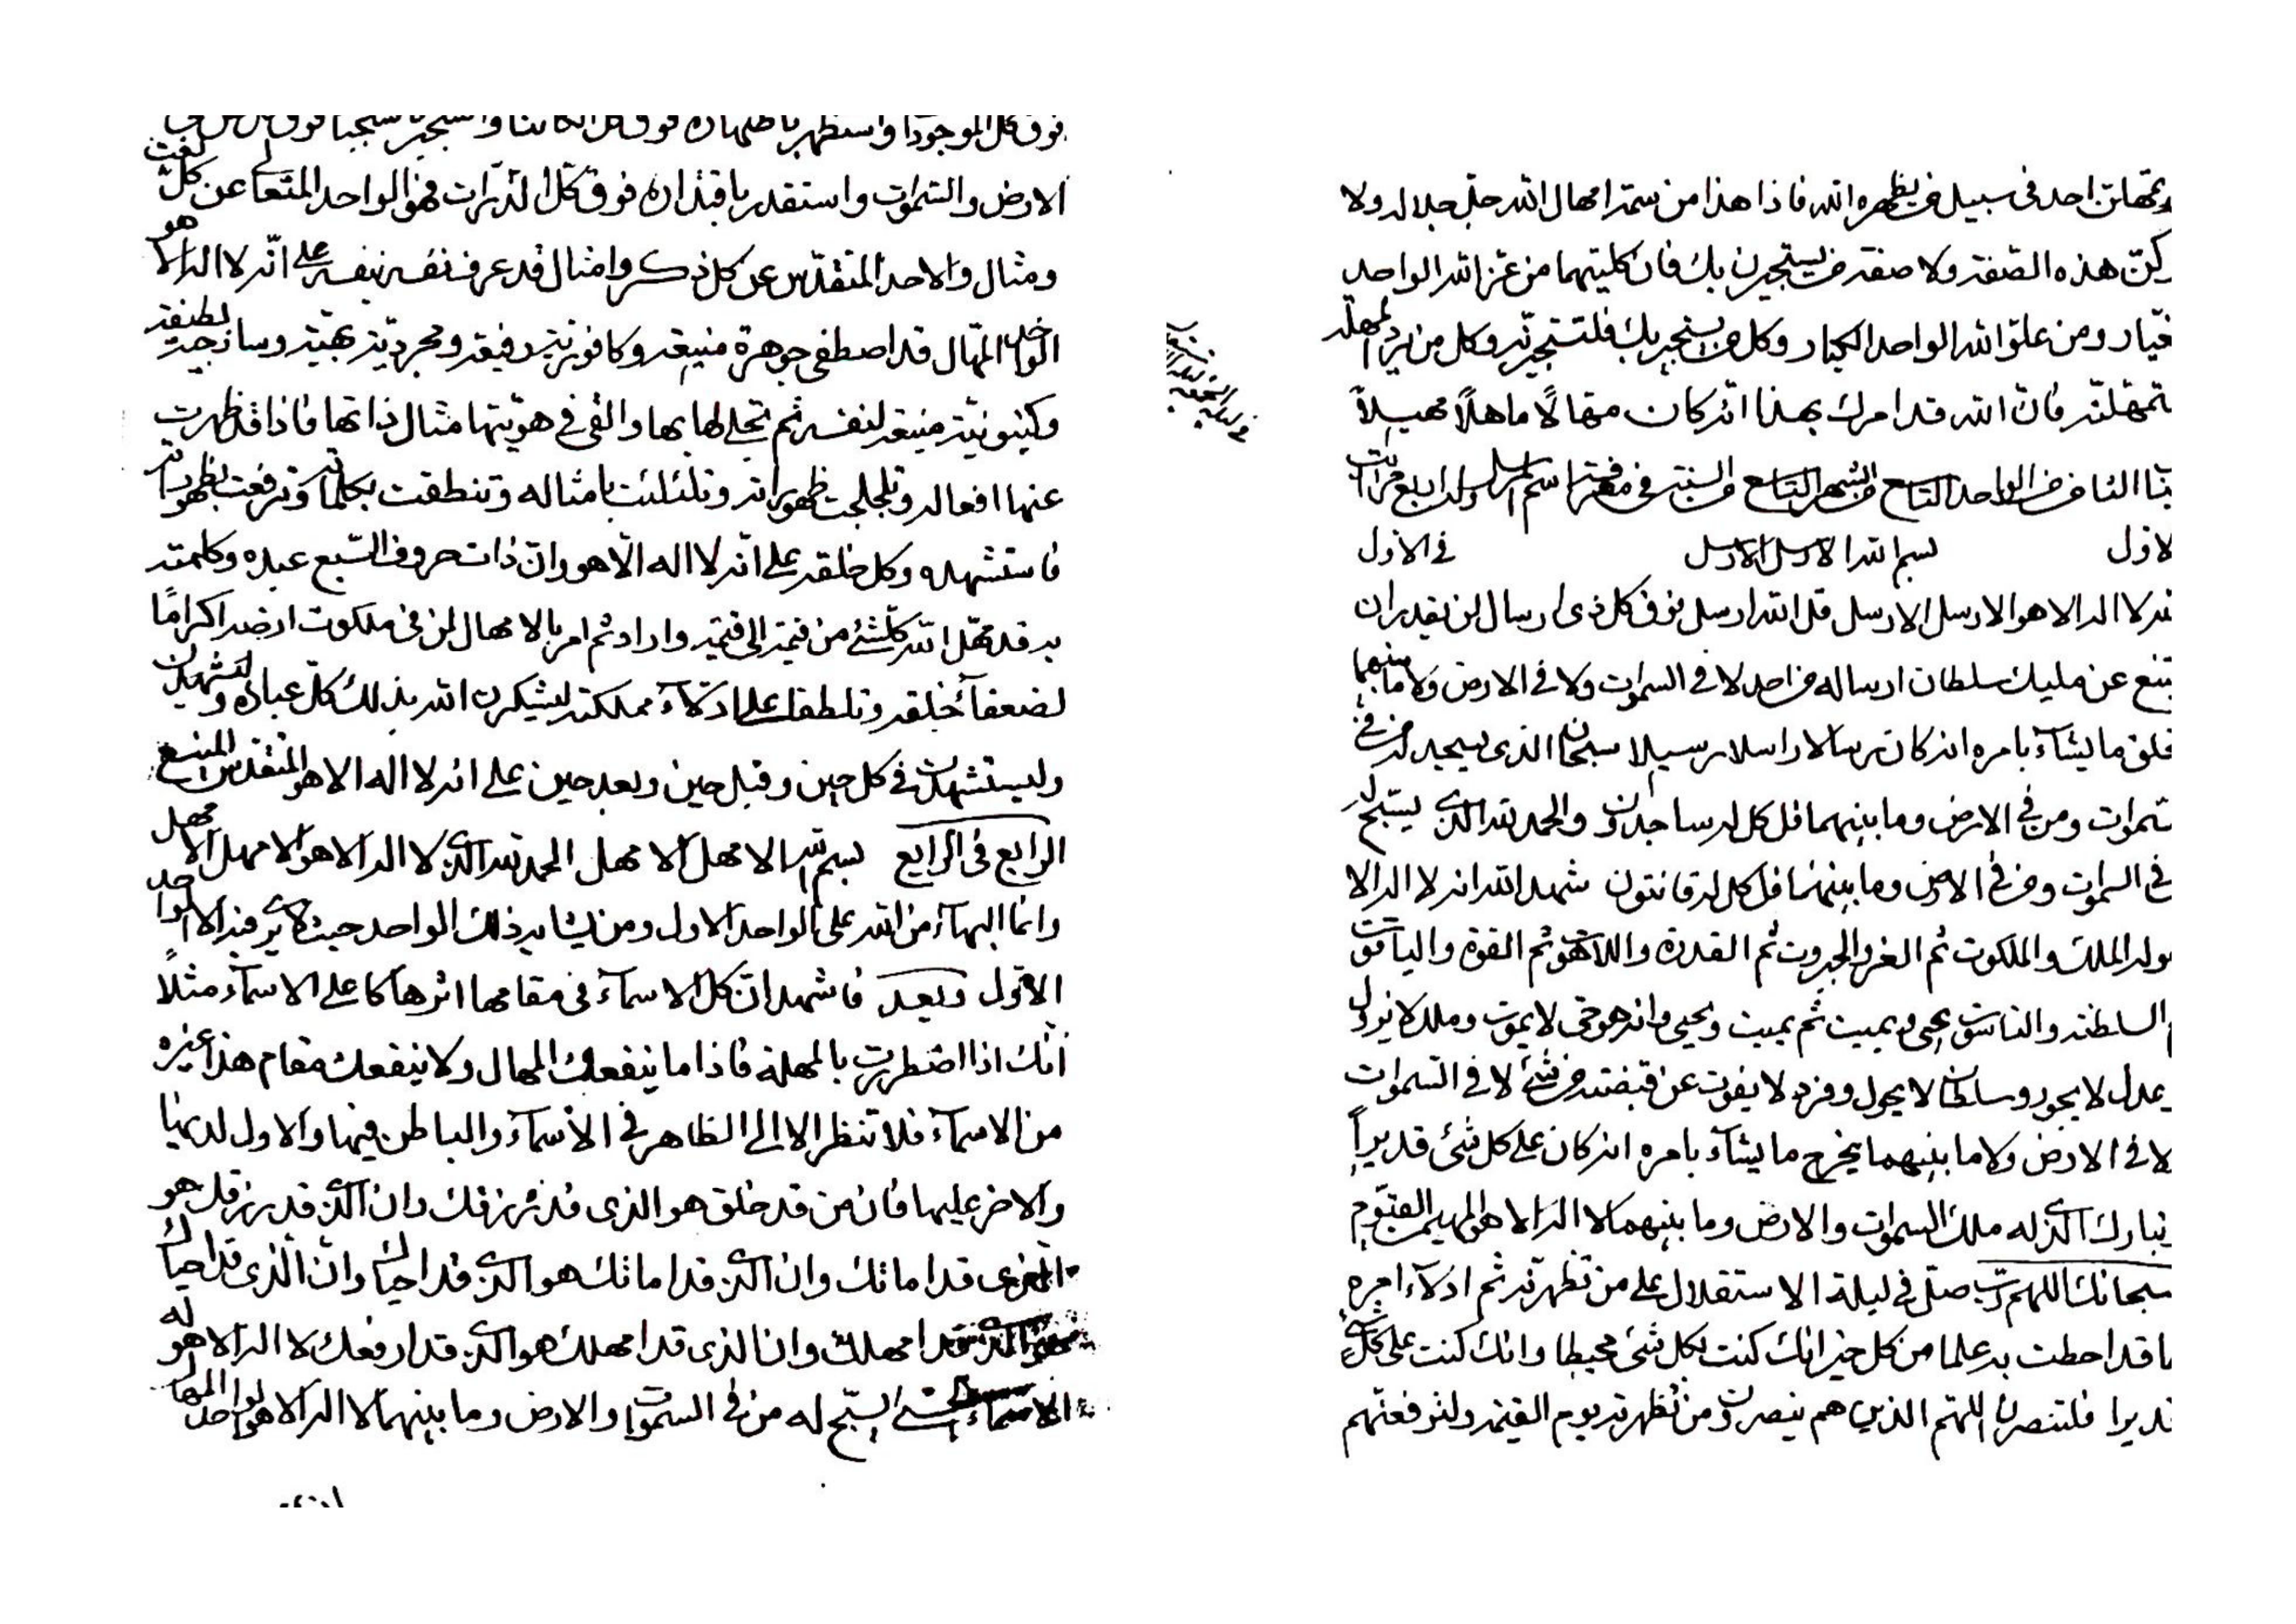 وتمهلن احد في سبيل من يظهره الله فاذا هذا من سمة امهال الله جل جلاله ولا
كن هذه الصفة ولا صفة من يستجيرن بك فان كلتيهما من عز الله الواحد
ومن علو الله الواحد الجبار وكل من يستجير بك فلتستجيرنه وكل من يريد المهلة
تمهلنه فان الله قد امرك بهذا انه كان مهالا ماهلا مهيلا
من الواحد التاسع من الشهر التاسع من السنة في معرفة اسم وله اربع مراتب
الاول بسم الله الارسل الارسل في الاول
لا اله الا هو الارسل الارسل قل الله ارسل فوق كل ذي ارسال لن يقدر ان
يمتنع عن مليك سلطان ارساله من احد لا في السموات ولا في الارض ولا ما بينهما
يخلق ما يشآء بامره انه كان رسالا راسلا رسيلا سبحان الذي يسجد له من في
السموات ومن في الارض وما بينهما قل كل له ساجدون والحمد لله الذي يسبح له
في السموات ومن في الارض وما بينهما قل كل له قانتون شهد الله انه لا اله الا
هو له الملك والملكوت ثم العز والجبروت ثم القدرة واللاهوت ثم القوة والياقوت
السلطنة والناسوت يحيي ويميت ثم يميت ويحيي وانه هو حي لا يموت وملك لا يزول
عدل لا يجور وسلطان لا يحول وفرد لا يفوت عن قبضته من شئ لا في السموات
لا في الارض ولا ما بينهما يخرج ما يشآء بامره انه كان على كل شئ قديرا
تبارك الذي له ملك السموات والارض وما بينهما لا اله الا هو المهيمن القيوم
سبحانك اللهم رب صل في ليلة الاستقلال على من تظهرنه ثم ادلآء امره
ما قد احطت به علما من كل خير انك كنت بكل شئ محيطا وانك كنت على كلشئ
قديرا فلتنصرن اللهم الذين هم ينصرون من تظهرنه يوم القيمة ولترفعنهم
فوق كل الموجودات واستظهر باظهاره فوق كل الكائنات
الارض والسموات واستقدر باقتداره فوق كل الذرات فهو الواحد المتعالي عن كل نعت
ومثال والاحد المتقدس عن كل ذكر وامثال قد عرف نفسه نفسه على انه لا اله الا هو
الواحد المهال قد اصطفى جوهرة منيعة وكافورية رفيعة ومجردية بهية وساذجية لطيفة
وكينونية منيعة لنفسه ثم تجلى لها بها والقى في هويتها مثال ذاتها فاذا قد ظهرت
عنها افعاله وتجلجت ظهوراته وتلئلئت بامثاله وتنطقت بكلماته وترفعت بظهوراته
فاستشهده وكل خلقه على انه لا اله الا هو وان ذات حروف السبع عبده وكلمته
به قد مهل الله كلشئ من قيمة الى قيمة واراد ثم امر بالامهال لمن في ملكوت ارضه اكراما
لضعفآء خلقه وتلطفا على ادلآء مملكته ليشكرن الله بذلك كل عباده وليشهدن
وليستشهدن في كل حين وقبل حين وبعد حين على انه لا اله الا هو المتقدس المنيع
الرابع في الرابع بسم الله الامهل الامهل الحمد لله الذي لا اله الا هو الامهل الامهل
وانما البهآء من الله على الواحد الاول ومن يشابه ذلك الواحد حيث لا يرى فيه الا الواحد
الاول وبعد فاشهد ان كل الاسمآء في مقامها اثرها كاعلى الاسمآء مثلا
انك اذا اضطررت بالمهلة فاذا ما ينفعك المهال ولا ينفعك مقام هذا غيره
من الاسمآء فلا تنظر الا الى الظاهر في الاسمآء والباطن فيها والاول لديها
والاخر عليها فان من قد خلق هو الذي قد رزقك وان الذي قد رزق هو
الذي قد اماتك وان الذي قد اماتك هو الذي قد احياك وان الذي قد احياك
هو الذي قد امهلك وان الذي قد امهلك هو الذي قد ارفعك لا اله الا هو له
الاسمآء الحسنى يسبح له من في السموات والارض وما بينهما لا اله الا هو الواحد المهال